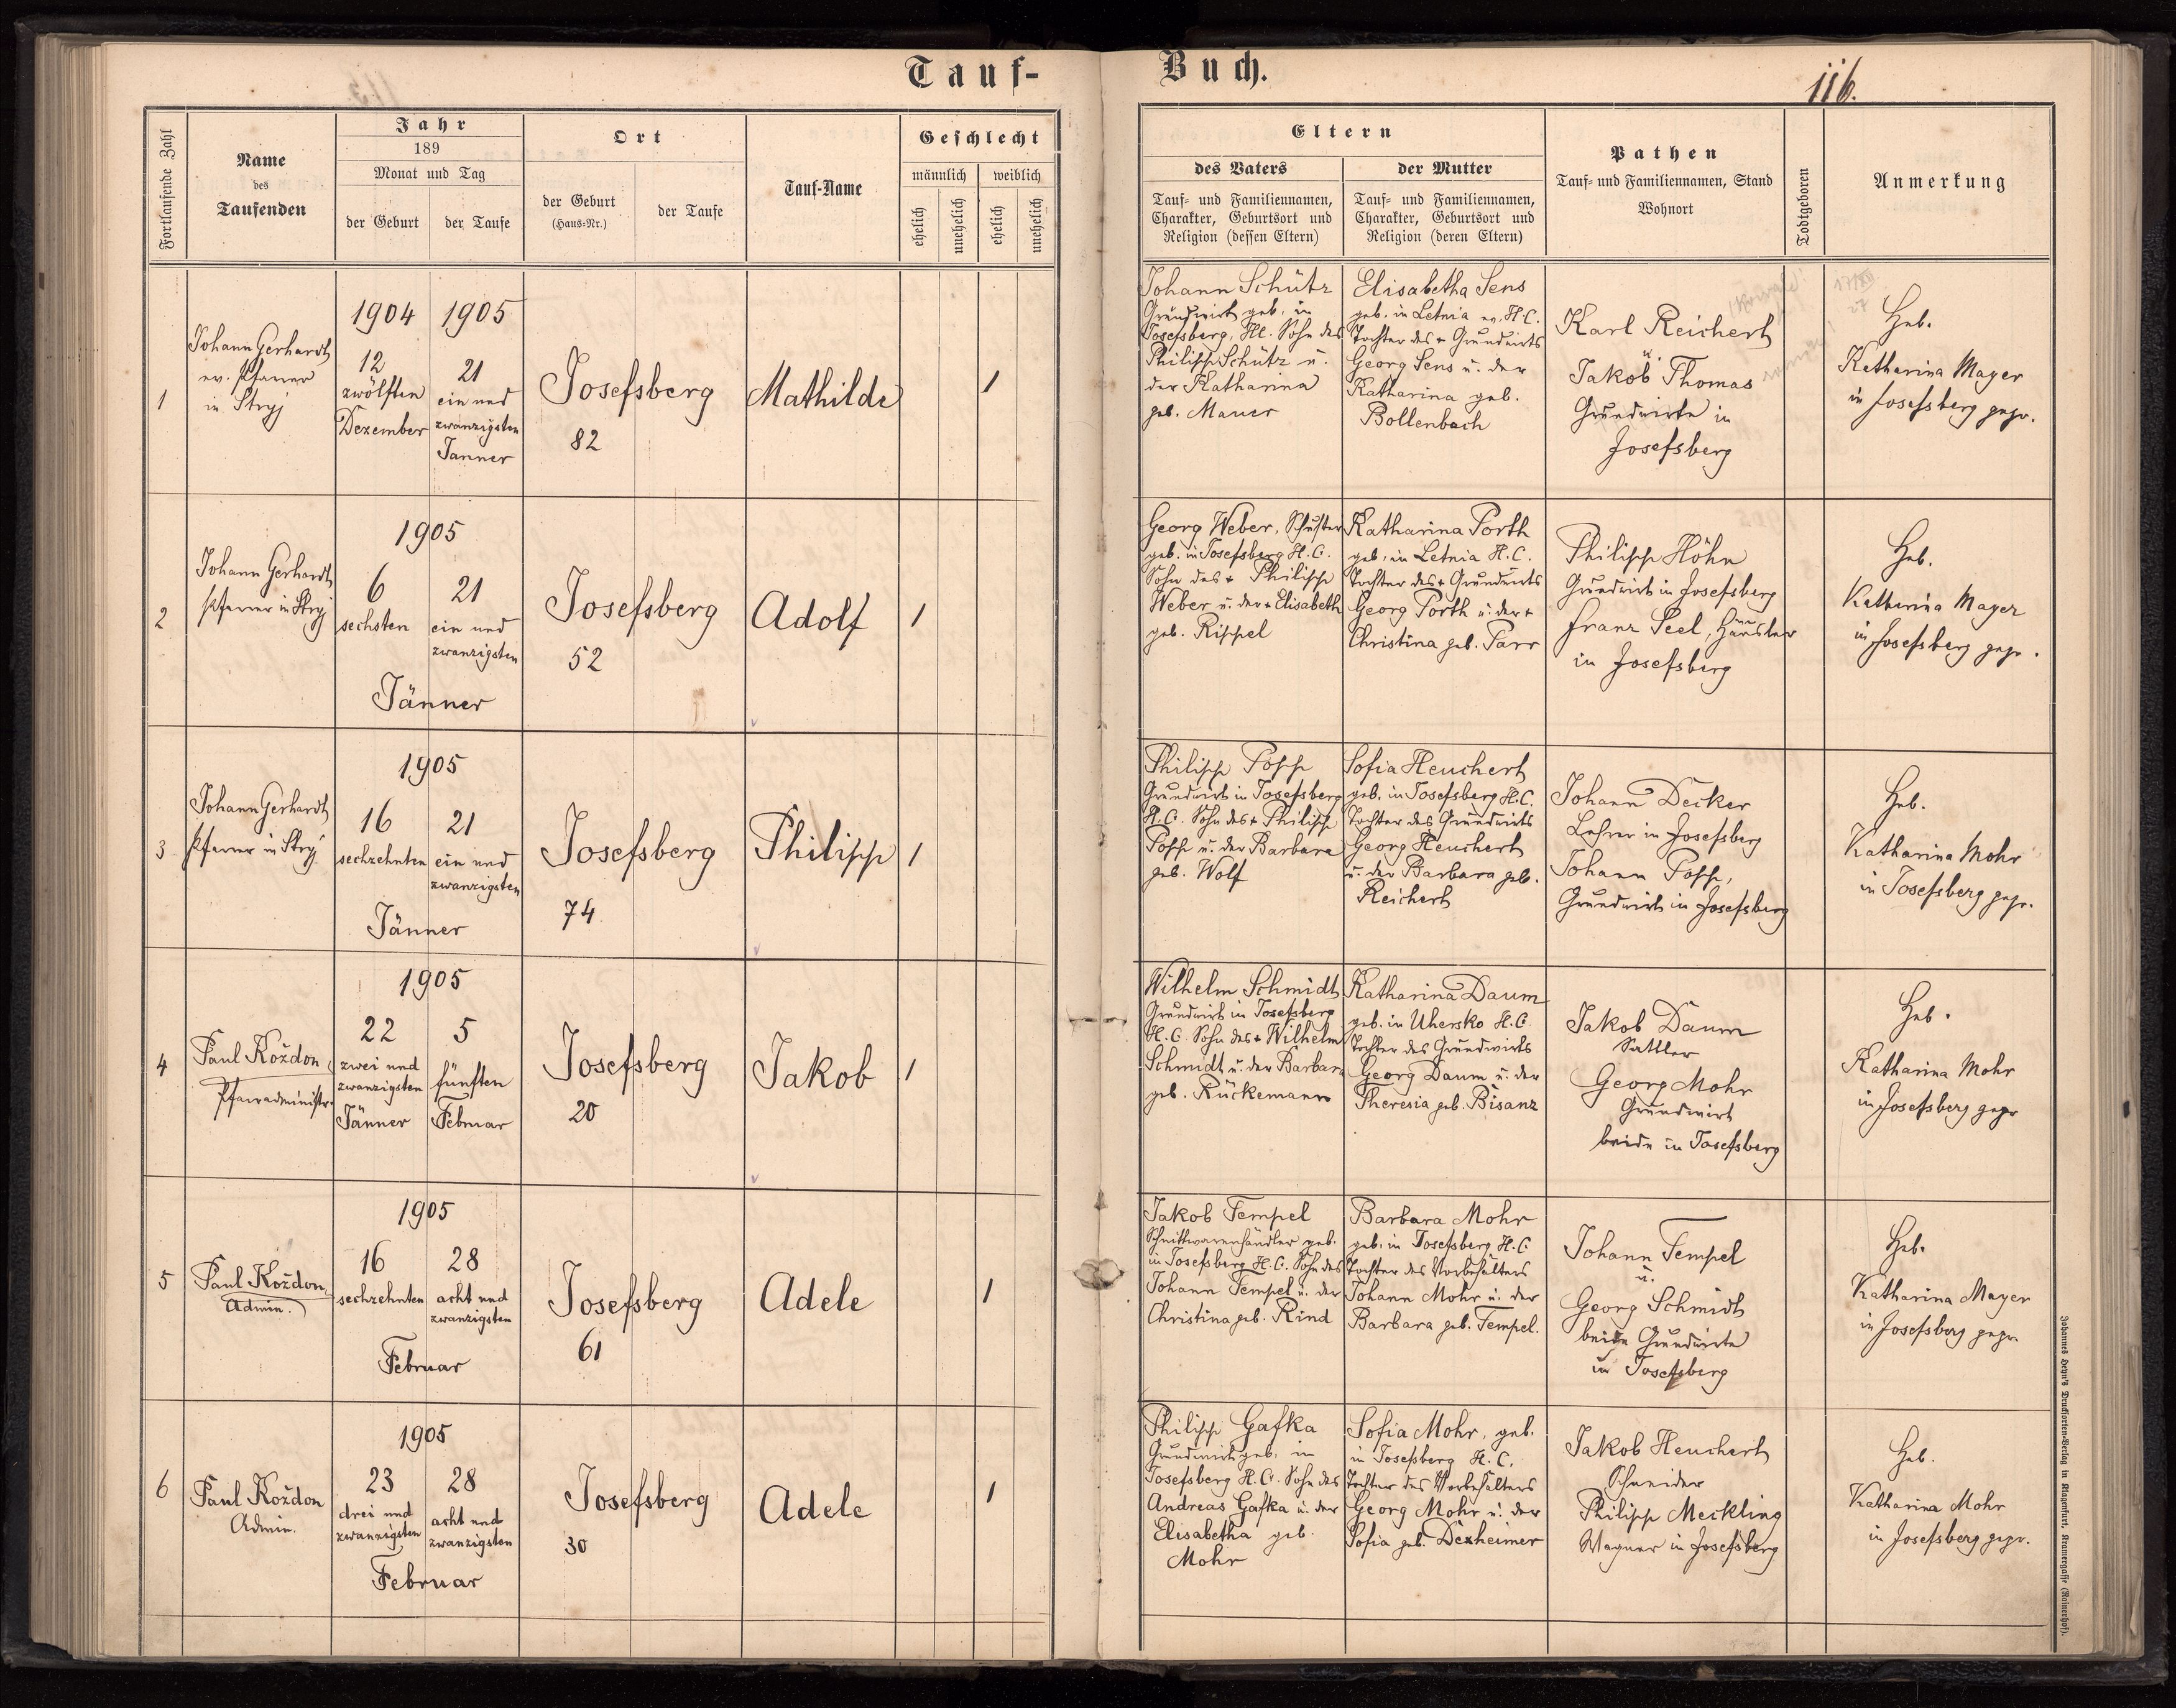 Tauf-
Buch.
116.
Fortlaufende Zahl
Name
des
Taufenden
Jahr
189
Monat und Tag
der Geburt
der Taufe
Ort
der Geburt
(Haus-Nr.)
der Taufe
Tauf-Name
Geschlecht
männlich
weiblich
ehelich
unehelich
ehelich
unehelich
Eltern
des Vaters
Tauf- und Familiennamen,
Charakter, Geburtsort und
Religion (dessen Eltern)
der Mutter
Tauf- und Familiennamen,
Charakter, Geburtsort und
Religion (deren Eltern)
Pathen
Tauf- und Familiennamen, Stand
Wohnort
Todtgeboren
Anmerkung
1
Johann Gerhardt
ev. Pfarrer
in Stryj
1904
12
zwölften
Dezember
1905
21
ein und
zwanzigsten
Jänner
Josefsberg
82
Mathilde
1
Johann Schütz
Grundwirt geb. in
Josefsberg, H.C. Sohn des
Philipp Schütz u.
der Katharina
geb. Mauer
Elisabetha Sens
geb. in Letnia ev. H.C.
Tochter des + Grundwirts
Georg Sens u. der
Katharina geb.
Bollenbach
Karl Reichert
u.
Jakob Thomas
Grundwirte in
Josefsberg
Heb.
Katharina Mayer
in Josefsberg gepr.
2
Johann Gerhardt
Pfarrer in Stryj
1905
6
sechsten
21
ein und
zwanzigsten
Jänner
Josefsberg
52
Adolf
1
Georg Weber, Schuster
geb. in Josefsberg H.C.
Sohn des + Philipp
Weber u. der + Elisabeth
geb. Rippel
Katharina Porth
geb. in Letnia H.C.
Tochter des + Grundwirts
Georg Porth u. der +
Christina geb. Parr
Philipp Höhn
Grundwirt in Josefsberg
Franz Seel, Häusler
in Josefsberg
Heb.
Katharina Mayer
in Josefsberg gepr.
3
Johann Gerhardt
Pfarrer in Stryj
1905
16
sechzehnten
21
ein und
zwanzigsten
Jänner
Josefsberg
74
Philipp
1
Philipp Popp
Grundwirt in Josefsberg
H.C. Sohn des + Philipp
Popp u. der Barbara
geb. Wolf
Sofia Heuchert
geb. in Josefsberg H.C.
Tochter des Grundwirts
Georg Heuchert
u. der Barbara geb.
Reichert
Johann Decker
Lehrer in Josefsberg
Johann Popp,
Grundwirt in Josefsberg
Heb.
Katharina Mohr
in Josefsberg gepr.
4
Paul Koždon,
Pfarradministr.
1905
22
zwei und
zwanzigsten
Jänner
5
fünften
Februar
Josefsberg
20
Jakob
1
Wilhelm Schmidt
Grundwirt in Josefsberg
H.C. Sohn des + Wilhelm
Schmidt u. der Barbara
geb. Rückemann
Katharina Daum
geb. in Uhersko H.C.
Tochter des Grundwirts
Georg Daum u. der
Theresia geb. Bisanz
Jakob Daum
Sattler
Georg Mohr
Grundwirt
beide in Josefsberg
Heb.
Katharina Mohr
in Josefsberg gepr
5
Paul Koždon,
Admin.
1905
16
sechzehnten
28
acht und
zwanzigsten
Februar
Josefsberg
61
Adele
1
Jakob Tempel
Schnittwarenhändler geb.
in Josefsberg H.C. Sohn des
Johann Tempel u. der
Christina geb. Rind
Barbara Mohr
geb. in Josefsberg H.C.
Tochter des Vorbehälters
Johann Mohr u. der
Barbara geb. Tempel.
Johann Tempel
u.
Georg Schmidt
beide Grundwirte
in Josefsberg
Heb.
Katharina Mayer
in Josefsberg gepr.
6
Paul Koždon
Admin.
1905
23
drei und
zwanzigsten
28
acht und
zwanzigsten
Februar
Josefsberg
30
Adele
1
Philipp Gafka
Grundwirt geb. in
Josefsberg H.C. Sohn des
Andreas Gafka u. der
Elisabetha geb.
Mohr
Sofia Mohr, geb.
in Josefsberg H.C.
Tochter des Vorbehälters
Georg Mohr u. der
Sofia geb. Dexheimer
Jakob Heuchert
Schneider
Philipp Meckling
Wagner in Josefsberg
Heb.
Katharina Mohr
in Josefsberg gepr.
Johannes Heyn's Drucksorten-Verlag in Klagenfurt, Kramergasse (Rainerhof).